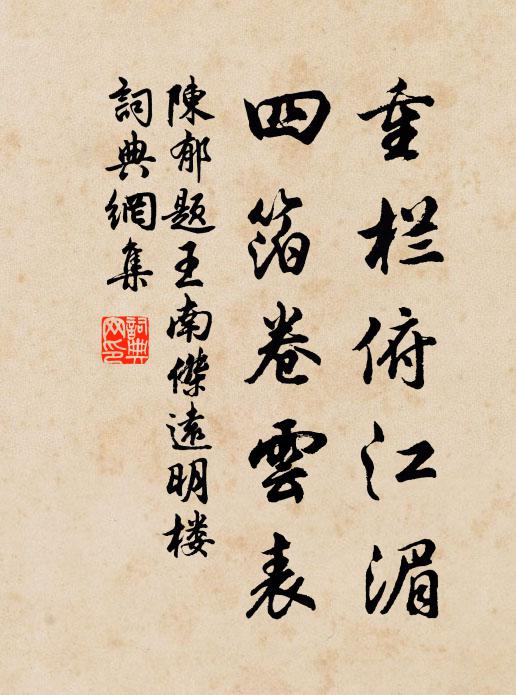 重栏俯江湄
四箔卷雲表
陳郁题王南傑遠明楼
詞典網集
詞典網印